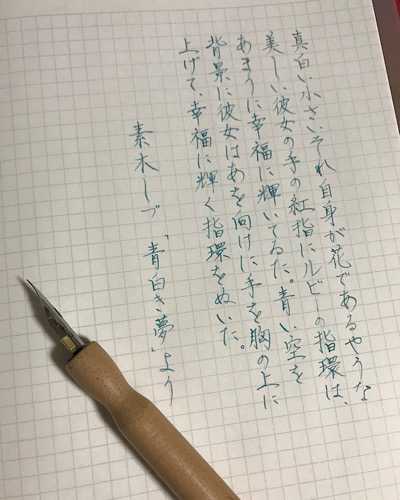 真白い小さいそれ自身が花であるやうな
美しい彼女の手の紅指にルビーの指環は、
あまりに幸福に輝いてゐた。青い空を
背景に彼女はあを向けに手を胸の上に
上げて、幸福に輝く指環をぬいた。
素木しづ「青白き夢」より